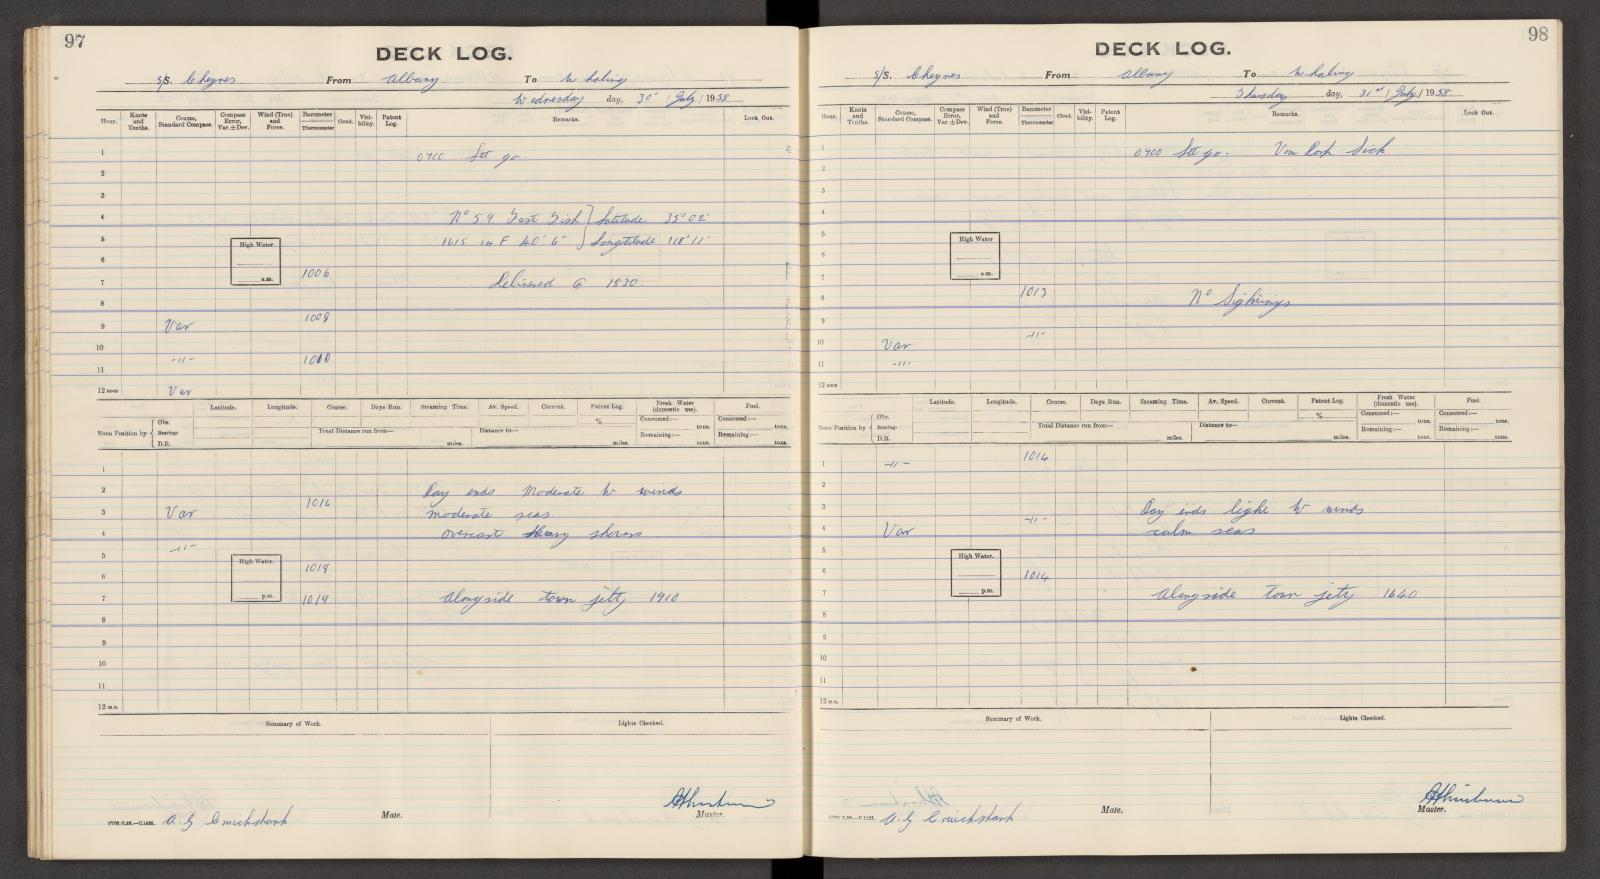 97
DECK LOG.
S/S. Cheynes From Albany To Whaling
Wednesday day, 30th / July / 1958
Hour. Knots and Tenths. Course, Standard Compass. Compass Error, Var. ± Dev. Wind (True) and Force. Barometer Thermometer Cloud. Visibility. Patent Log. Remarks. Look Out.
1 0700 Set go.
2
3
4 No 59 Fast Fish } Latitude 35° 02'
5 1615 1H F 40' 6" } Longtitude 118° 11'
High Water
a.m.
6
7 1006 Delivered @ 1830.
8
9 Var 1009
10
11 -11- 1010
12 noon Var
Latitude. Longitude. Course. Days Run. Steaming Time. Av. Speed. Current. Patent Log. Fresh Water (domestic use). Fuel.
Noon Position by Obs. Bearings D.R. Total Distance run from— miles. Distance to— miles. % Consumed:— tons. Remaining:— tons. Consumed:— tons. Remaining:— tons.
1
2 Day ends Moderate W winds
3 Var 1016 moderate seas.
4 overcast heavy showers
5 -11-
High Water.
p.m.
6 1019
7 1019 Alongside town jetty 1910
8
9
10
11
12 m.n.
Summary of Work. Lights Checked.
A. G Cruickshank Mate. Master.
98
DECK LOG.
S/S. Cheynes From Albany To Whaling
Thursday day, 31st / July / 1958
Hour. Knots and Tenths. Course, Standard Compass. Compass Error, Var. ± Dev. Wind (True) and Force. Barometer Thermometer Cloud. Visibility. Patent Log. Remarks. Look Out.
1 0700 Set go. Sick
2
3
4
5
High Water
a.m.
6
7
8 1013 No Sightings
9
10 Var -11-
11 -11-
12 noon
Latitude. Longitude. Course. Days Run. Steaming Time. Av. Speed. Current. Patent Log. Fresh Water (domestic use). Fuel.
Noon Position by Obs. Bearings D.R. Total Distance run from— miles. Distance to— miles. % Consumed:— tons. Remaining:— tons. Consumed:— tons. Remaining:— tons.
1 -11- 1014
2
3 Day ends light W winds
4 Var -11- calm seas
5
High Water.
p.m.
6 1014
7 Alongside town jetty 1640
8
9
10
11
12 m.n.
Summary of Work. Lights Checked.
A. G Cruickshank Mate. Master.